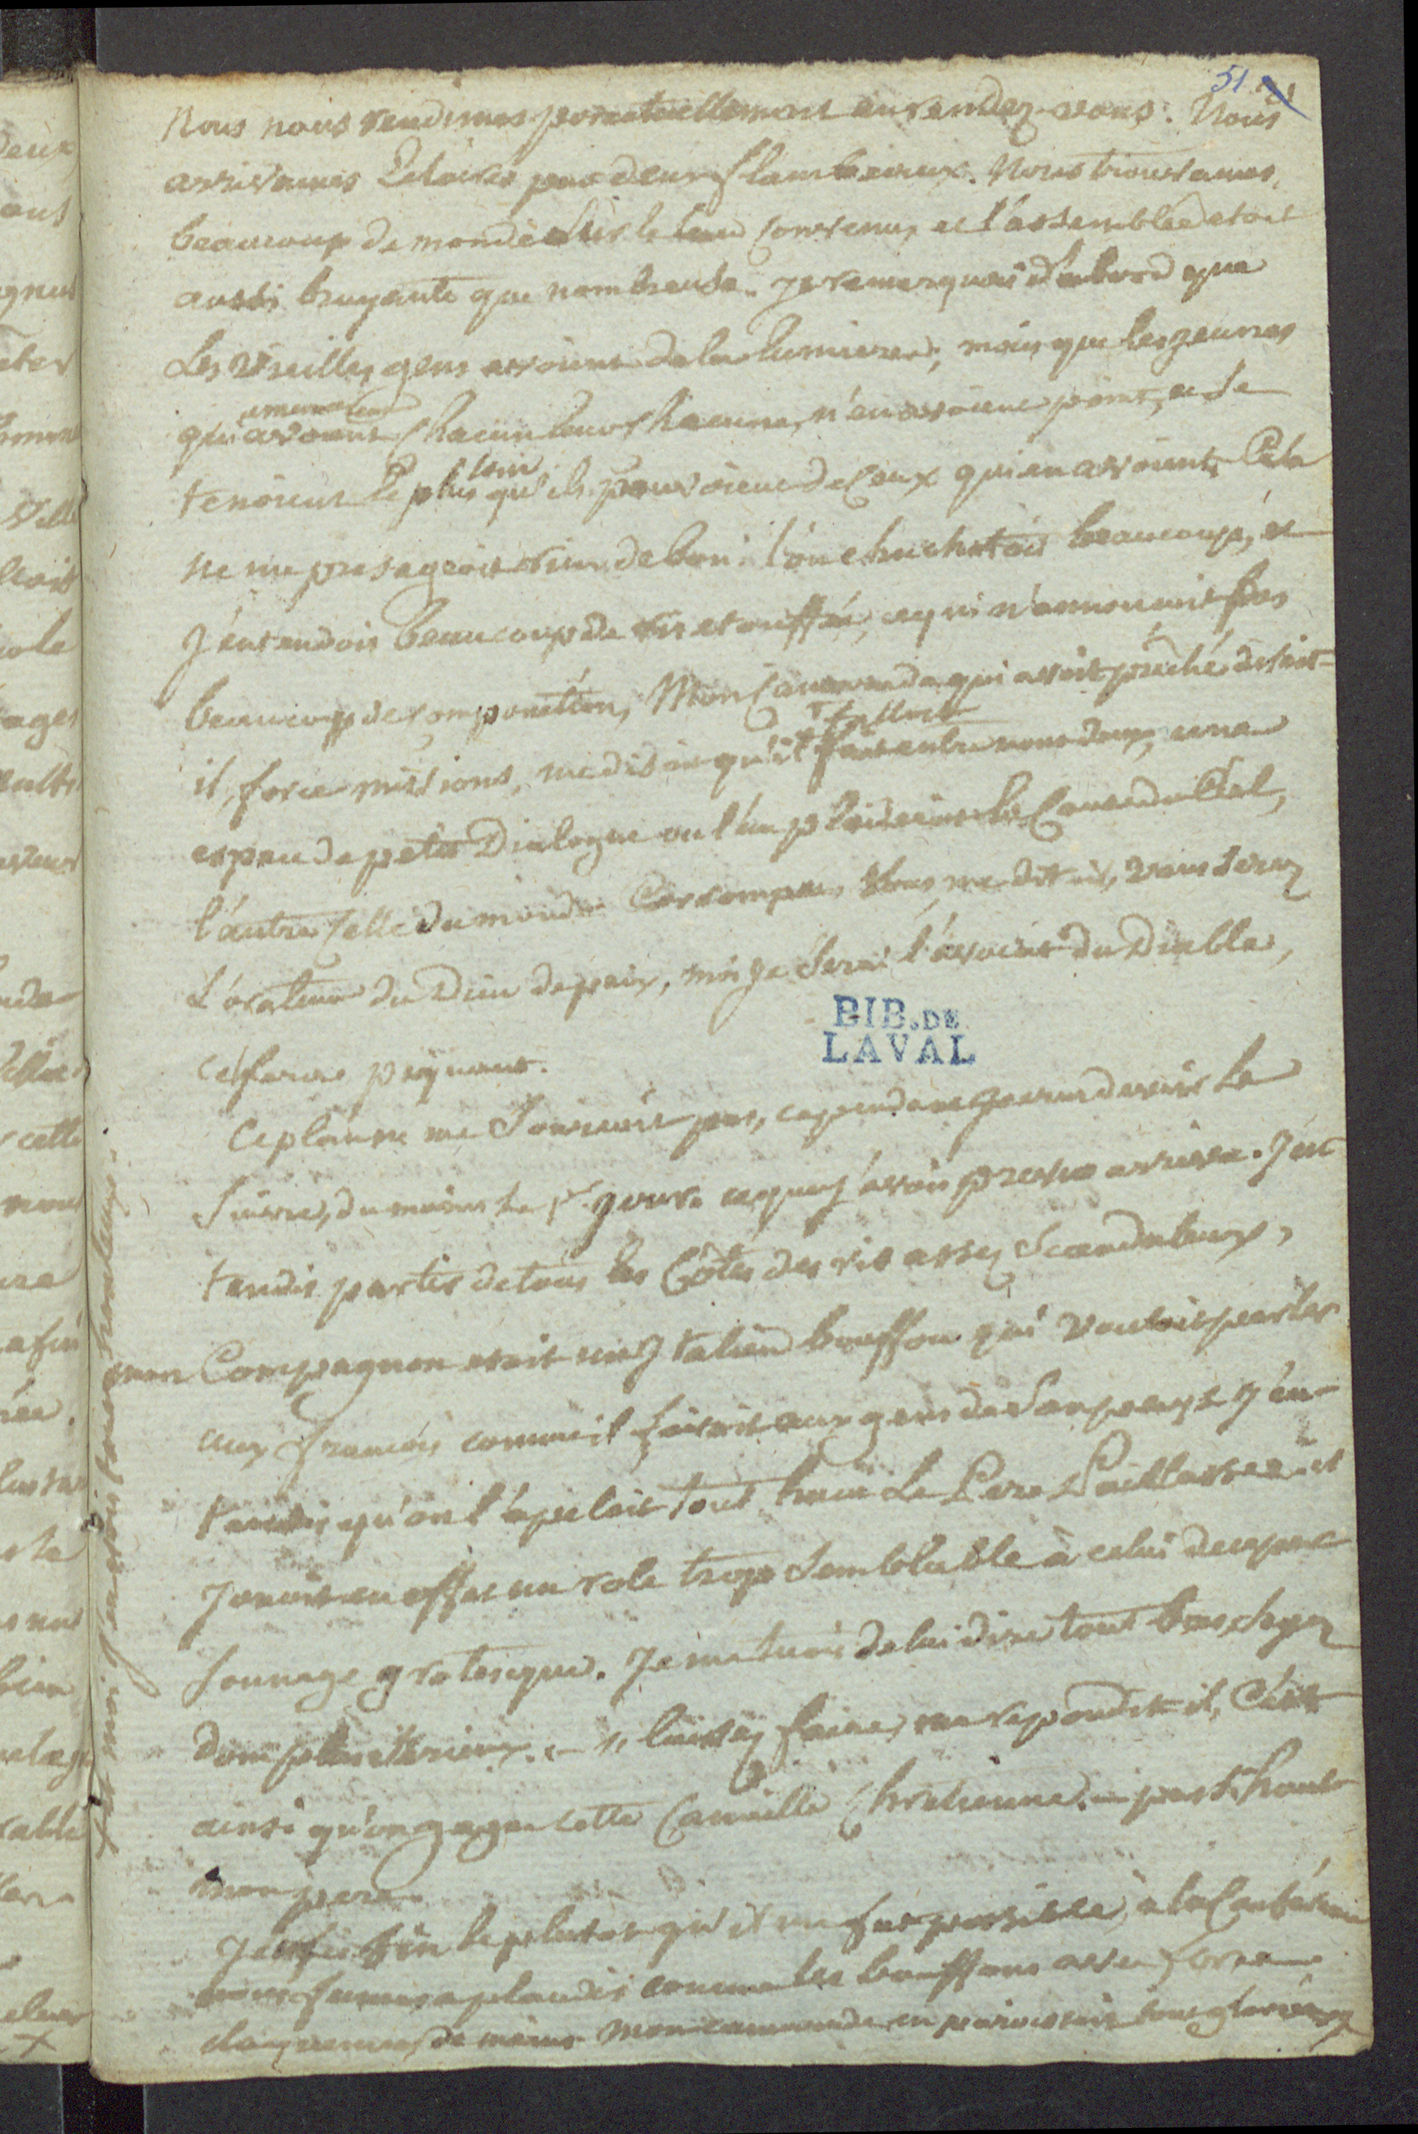 51
Nous nous rendimes ponctuellement au rendez-vous. Nous
arrivames Eclairés par deux flambeaux. Nous trouvames
beaucoup de monde sur le lieu convenu, et l'assemblée etoit
aussi bruyante que nombreuse. Je remarquai d'abord que
Les vieilles gens avoient de la lumiere; mais que les jeunes
qui avoient chacun leur chacune, n'en avoient point, et se
tenoient le plus loin qu'ils pouvoient de Ceux qui en avoient. Cela
ne me presageoit rien de bon. l'on chuchotoit beaucoup, et
J'entendois beaucoup de ris etouffés, ce qui n'annoncoit pas
beaucoup de componction, Mon Camarade qui avoit prêché disoit-
il, force missions, me dit qu'il falloit faire entre nous deux, une
espece de petit Dialogue ou l'un plaideroit la Cause du Ciel,
l'autre celle du monde Corrompu. Vous, me dit-il, vous serez
L'orateur du Dieu de paix, moi Je serai l'avocat du Diable,
Ce plan ne me sourioit pas, cependant Je crus devoir le
suivre, du moins le 1er jour. ce que j'avois prevu arriva. J'en
tendis partir de tous les Côtés des ris assez scandaleux,
mon Compagnon etoit un Italien bouffon qui vouloit parler
aux francois comme il faisoit aux gens de son pays. J'en-
tendis qu'on l'apeloit tout haut Le Pere Paillasse. il
Jouoit en effet un role trop semblable à celui de ce per
sonnage grotesque. Je me tuois de lui dire tout bas, soyez
donc plus serieux. — laissez faire, me repondit-il, C'est
ainsi qu'on gagne cette Canaille Chretienne. — pas si haut
mon pere.
Je mis fin le plutot qu'il me fut possible, à la Conférence
nous fumes aplaudis comme les bouffons avec force
claquemens de mains. Mon camarade en paroissoit tout glorieux
BIB. DE
LAVAL